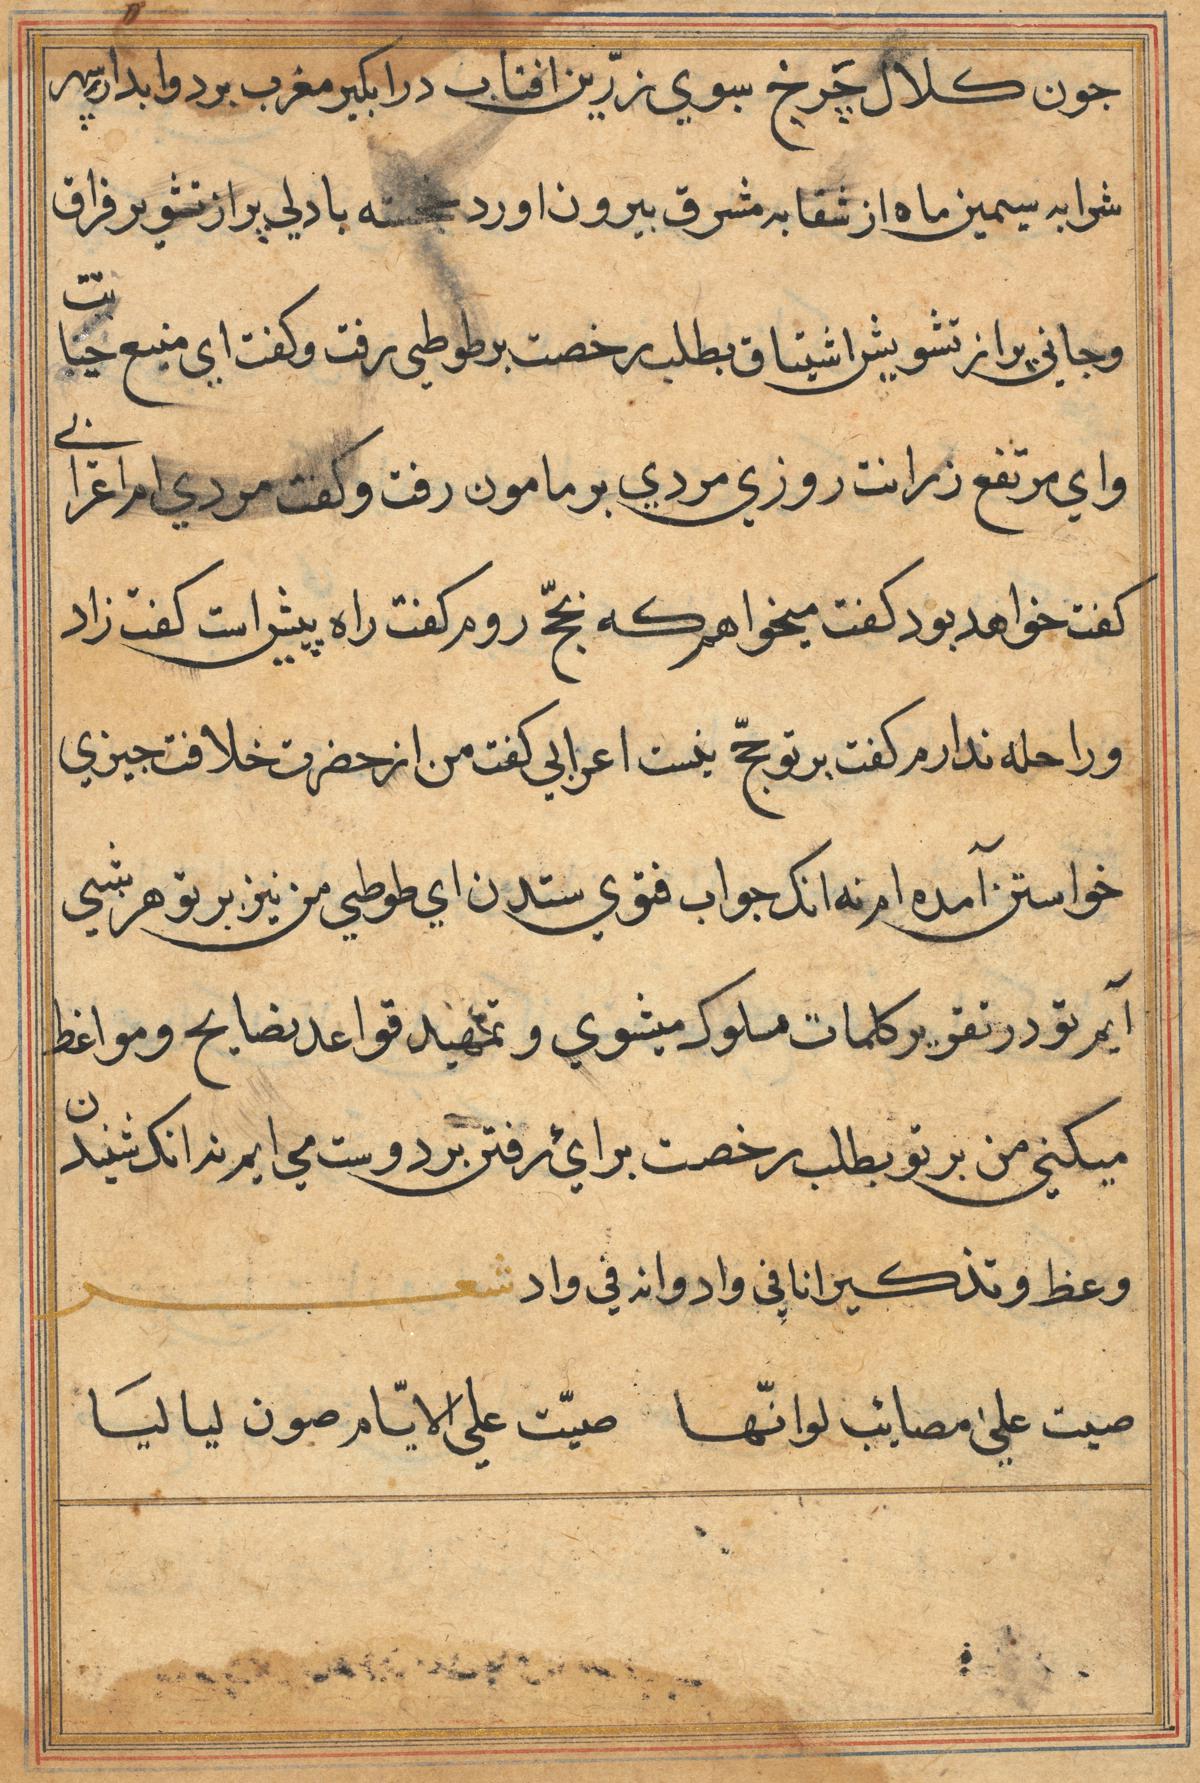 جون كلال چرخ سبوي زرّين افتاب درابكير مغرب برد وابدار سپهر
شرابه سيمين ماه از شقابه مشرق بيرون اورد خجسته بادلي پراز تشوير فراق
وجاني پراز تشويش اشتياق بطلب رخصت بر طوطي رفت وكفت اي منبع حياتت
واي مرتفع زرانت روزي مردي بر مامون رفت وكفت مردي ام اعرابي
كفت خواهد بود كفت ميخواهم كه بحجّ روم كفت راه پيش است كفت زاد
وراحله ندارم كفت بر تو حجّ نيست اعرابي كفت من از حضرت خلافت چيزي
خواستن آمده ام نه انك جواب فتوي ستدن اي طوطي من نيز بر تو هر شبي
آيم تو در تقوير كلمات سلوك ميشوي و تمهيد قواعد نصايح و مواعظ
ميكني من بر تو بطلب رخصت براي رفتن بر دوست مي ايم نه انك شنيدن
وعظ و تذكير انا في واد وانه في واد شعر
صبت علي مصائب لو انّها صبّت علي الايّام صرن لياليا